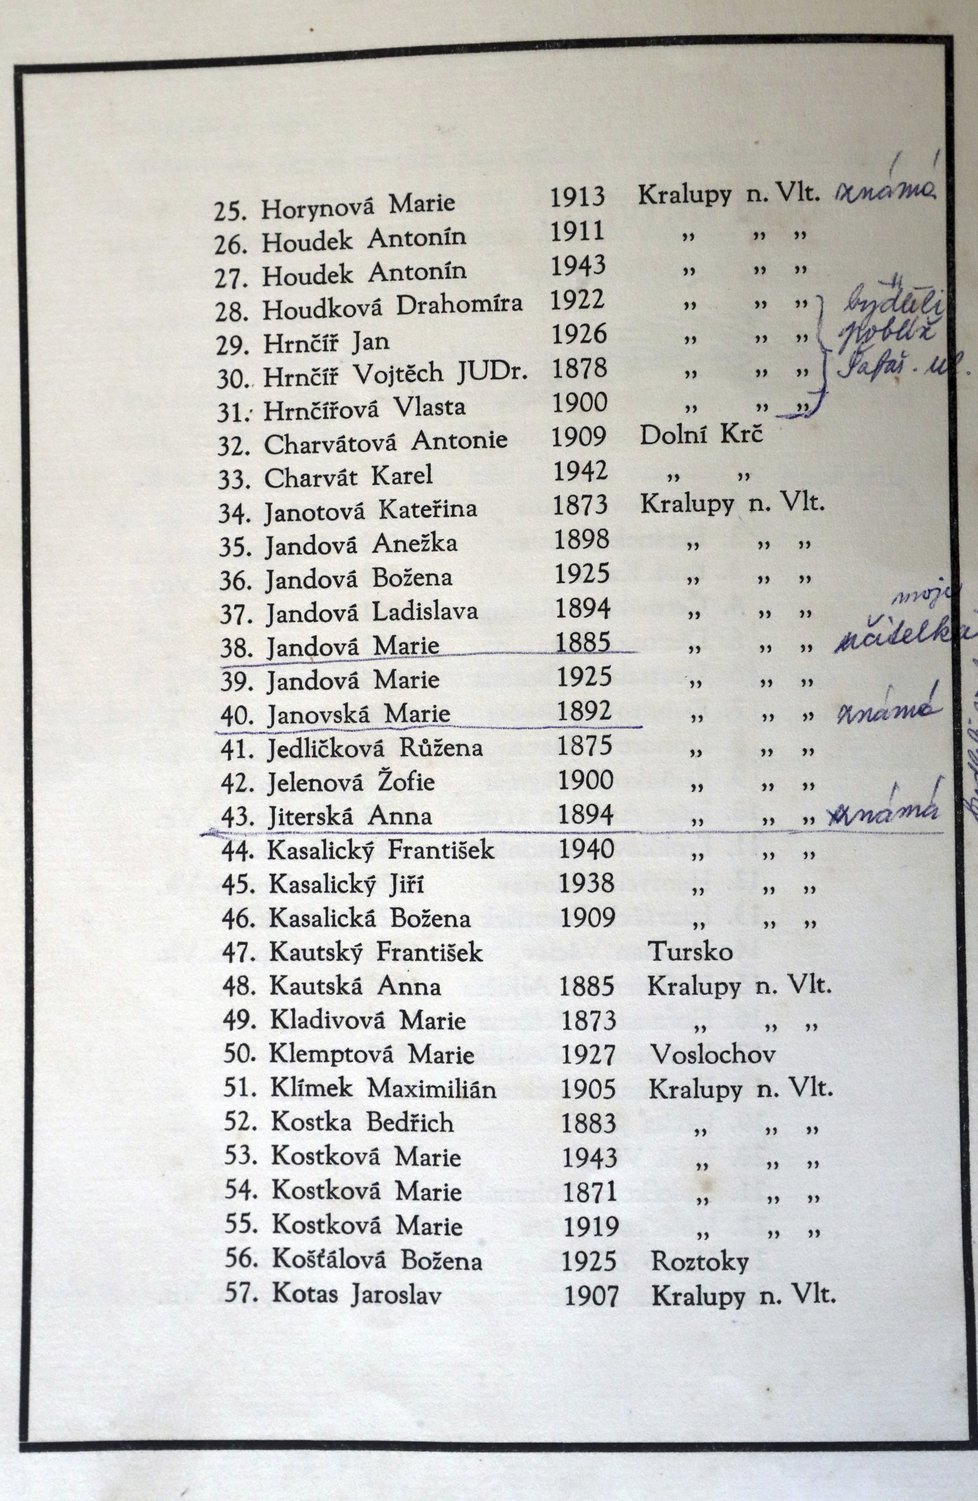 25. Horynová Marie 1913 Kralupy n. Vlt. známá
26. Houdek Antonín 1911 „ „ „
27. Houdek Antonín 1943 „ „ „
28. Houdková Drahomíra 1922 „ „ „ bydleli
29. Hrnčíř Jan 1926 „ „ „ poblíž
30. Hrnčíř Vojtěch JUDr. 1878 „ „ „ ul.
31. Hrnčířová Vlasta 1900 „ „ „
32. Charvátová Antonie 1909 Dolní Krč
33. Charvát Karel 1942 „ „
34. Janotová Kateřina 1873 Kralupy n. Vlt.
35. Jandová Anežka 1898 „ „ „
36. Jandová Božena 1925 „ „ „
37. Jandová Ladislava 1894 „ „ „ moje
38. Jandová Marie 1885 „ „ „ učitelka
39. Jandová Marie 1925 „ „ „
40. Janovská Marie 1892 „ „ „ známá
41. Jedličková Růžena 1875 „ „ „
42. Jelenová Žofie 1900 „ „ „
43. Jiterská Anna 1894 „ „ „ známá
44. Kasalický František 1940 „ „ „
45. Kasalický Jiří 1938 „ „ „
46. Kasalická Božena 1909 „ „ „
47. Kautský František Tursko
48. Kautská Anna 1885 Kralupy n. Vlt.
49. Kladivová Marie 1873 „ „ „
50. Klemptová Marie 1927 Voslochov
51. Klímek Maximilián 1905 Kralupy n. Vlt.
52. Kostka Bedřich 1883 „ „ „
53. Kostková Marie 1943 „ „ „
54. Kostková Marie 1871 „ „ „
55. Kostková Marie 1919 „ „ „
56. Košťálová Božena 1925 Roztoky
57. Kotas Jaroslav 1907 Kralupy n. Vlt.